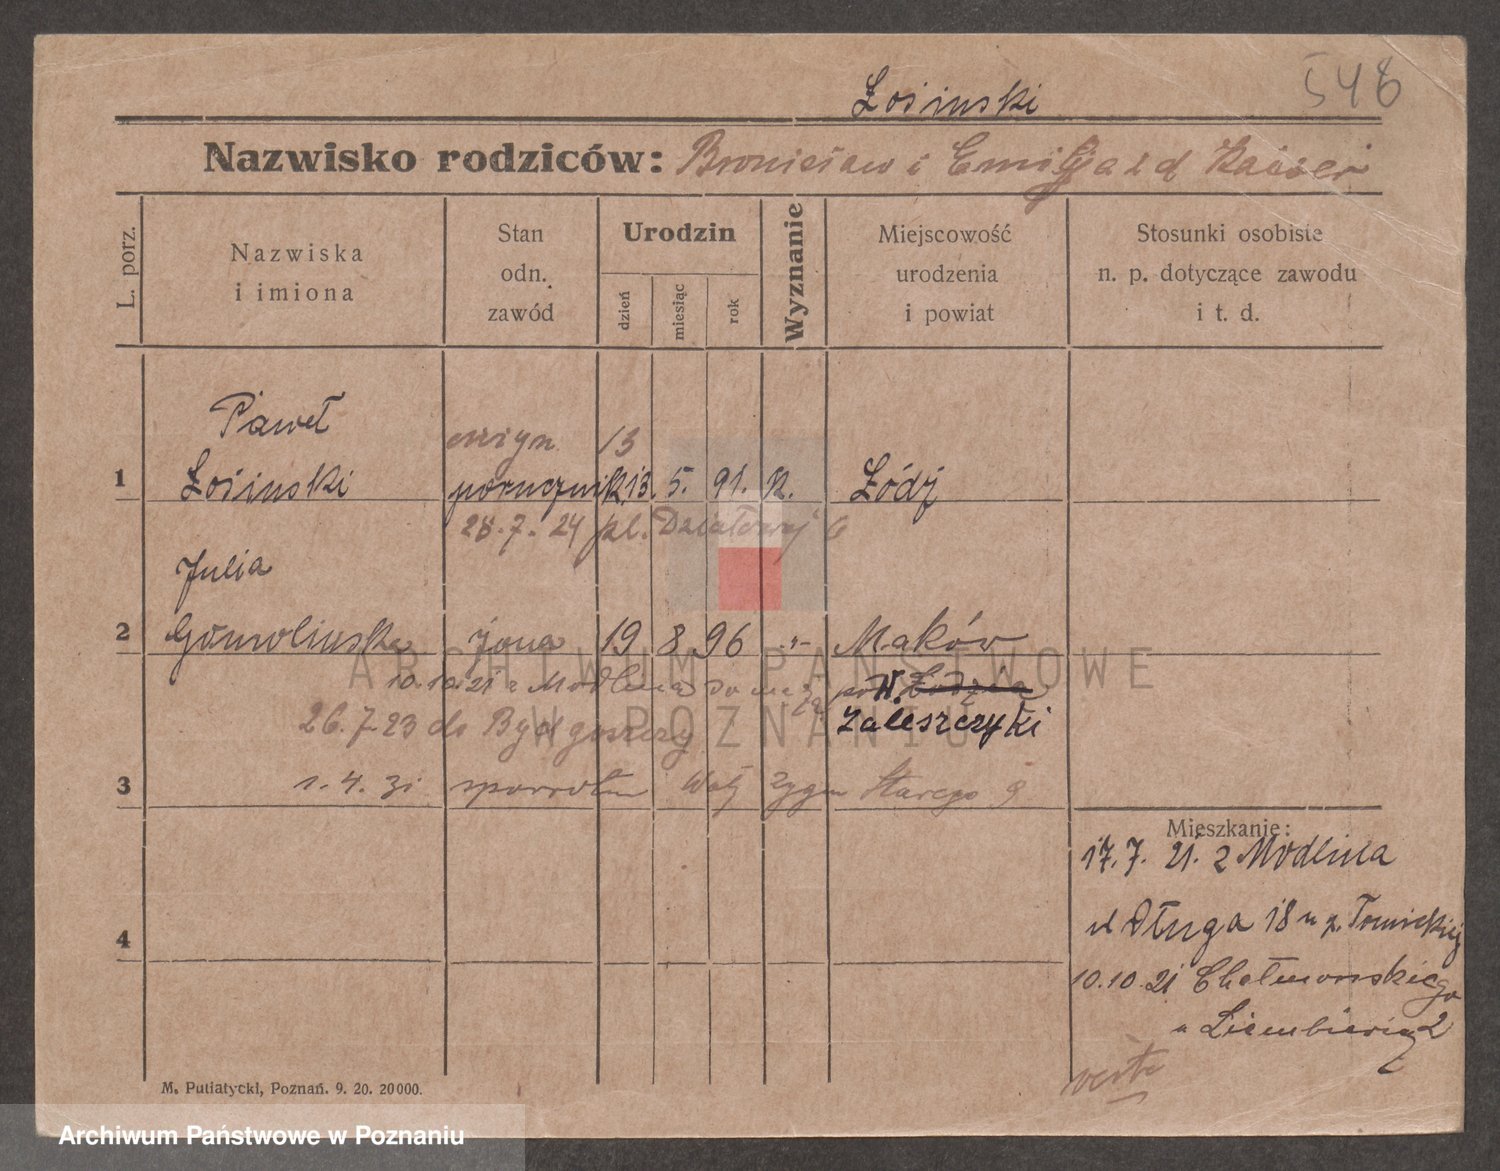 548
Łosinski
Nazwisko rodziców: Bronisław i Emilja z d Kaiser
L. porz.
Nazwiska
i imiona
Stan
odn.
zawód
Urodzin
dzień
miesiąc
rok
Wyznanie
Miejscowość
urodzenia
i powiat
Stosunki osobiste
n. p. dotyczące zawodu
i t. d.
Paweł
13
1 Łosinski porucznik 13. 5. 91. K. Łódź
28.7.24 pl. Działowy 6
Julia
2 Gomolinska żona 19 8 96 -"- Maków
10.10.21 z Modlina do męża
26.7.23 do Bydgoszczy Zaleszczyki
3 1.4.31 zpowrotem Wały Zygm Starego 9
Mieszkanie:
17.7. 21. z Modlina
ul Długa 18 u p. Tomickiej
4
10.10.21 Chełmonskiego
u 2
verte
M. Putiatycki, Poznań. 9. 20. 20000.
ARCHIWUM PAŃSTWOWE
W POZNANIU
Archiwum Państwowe w Poznaniu